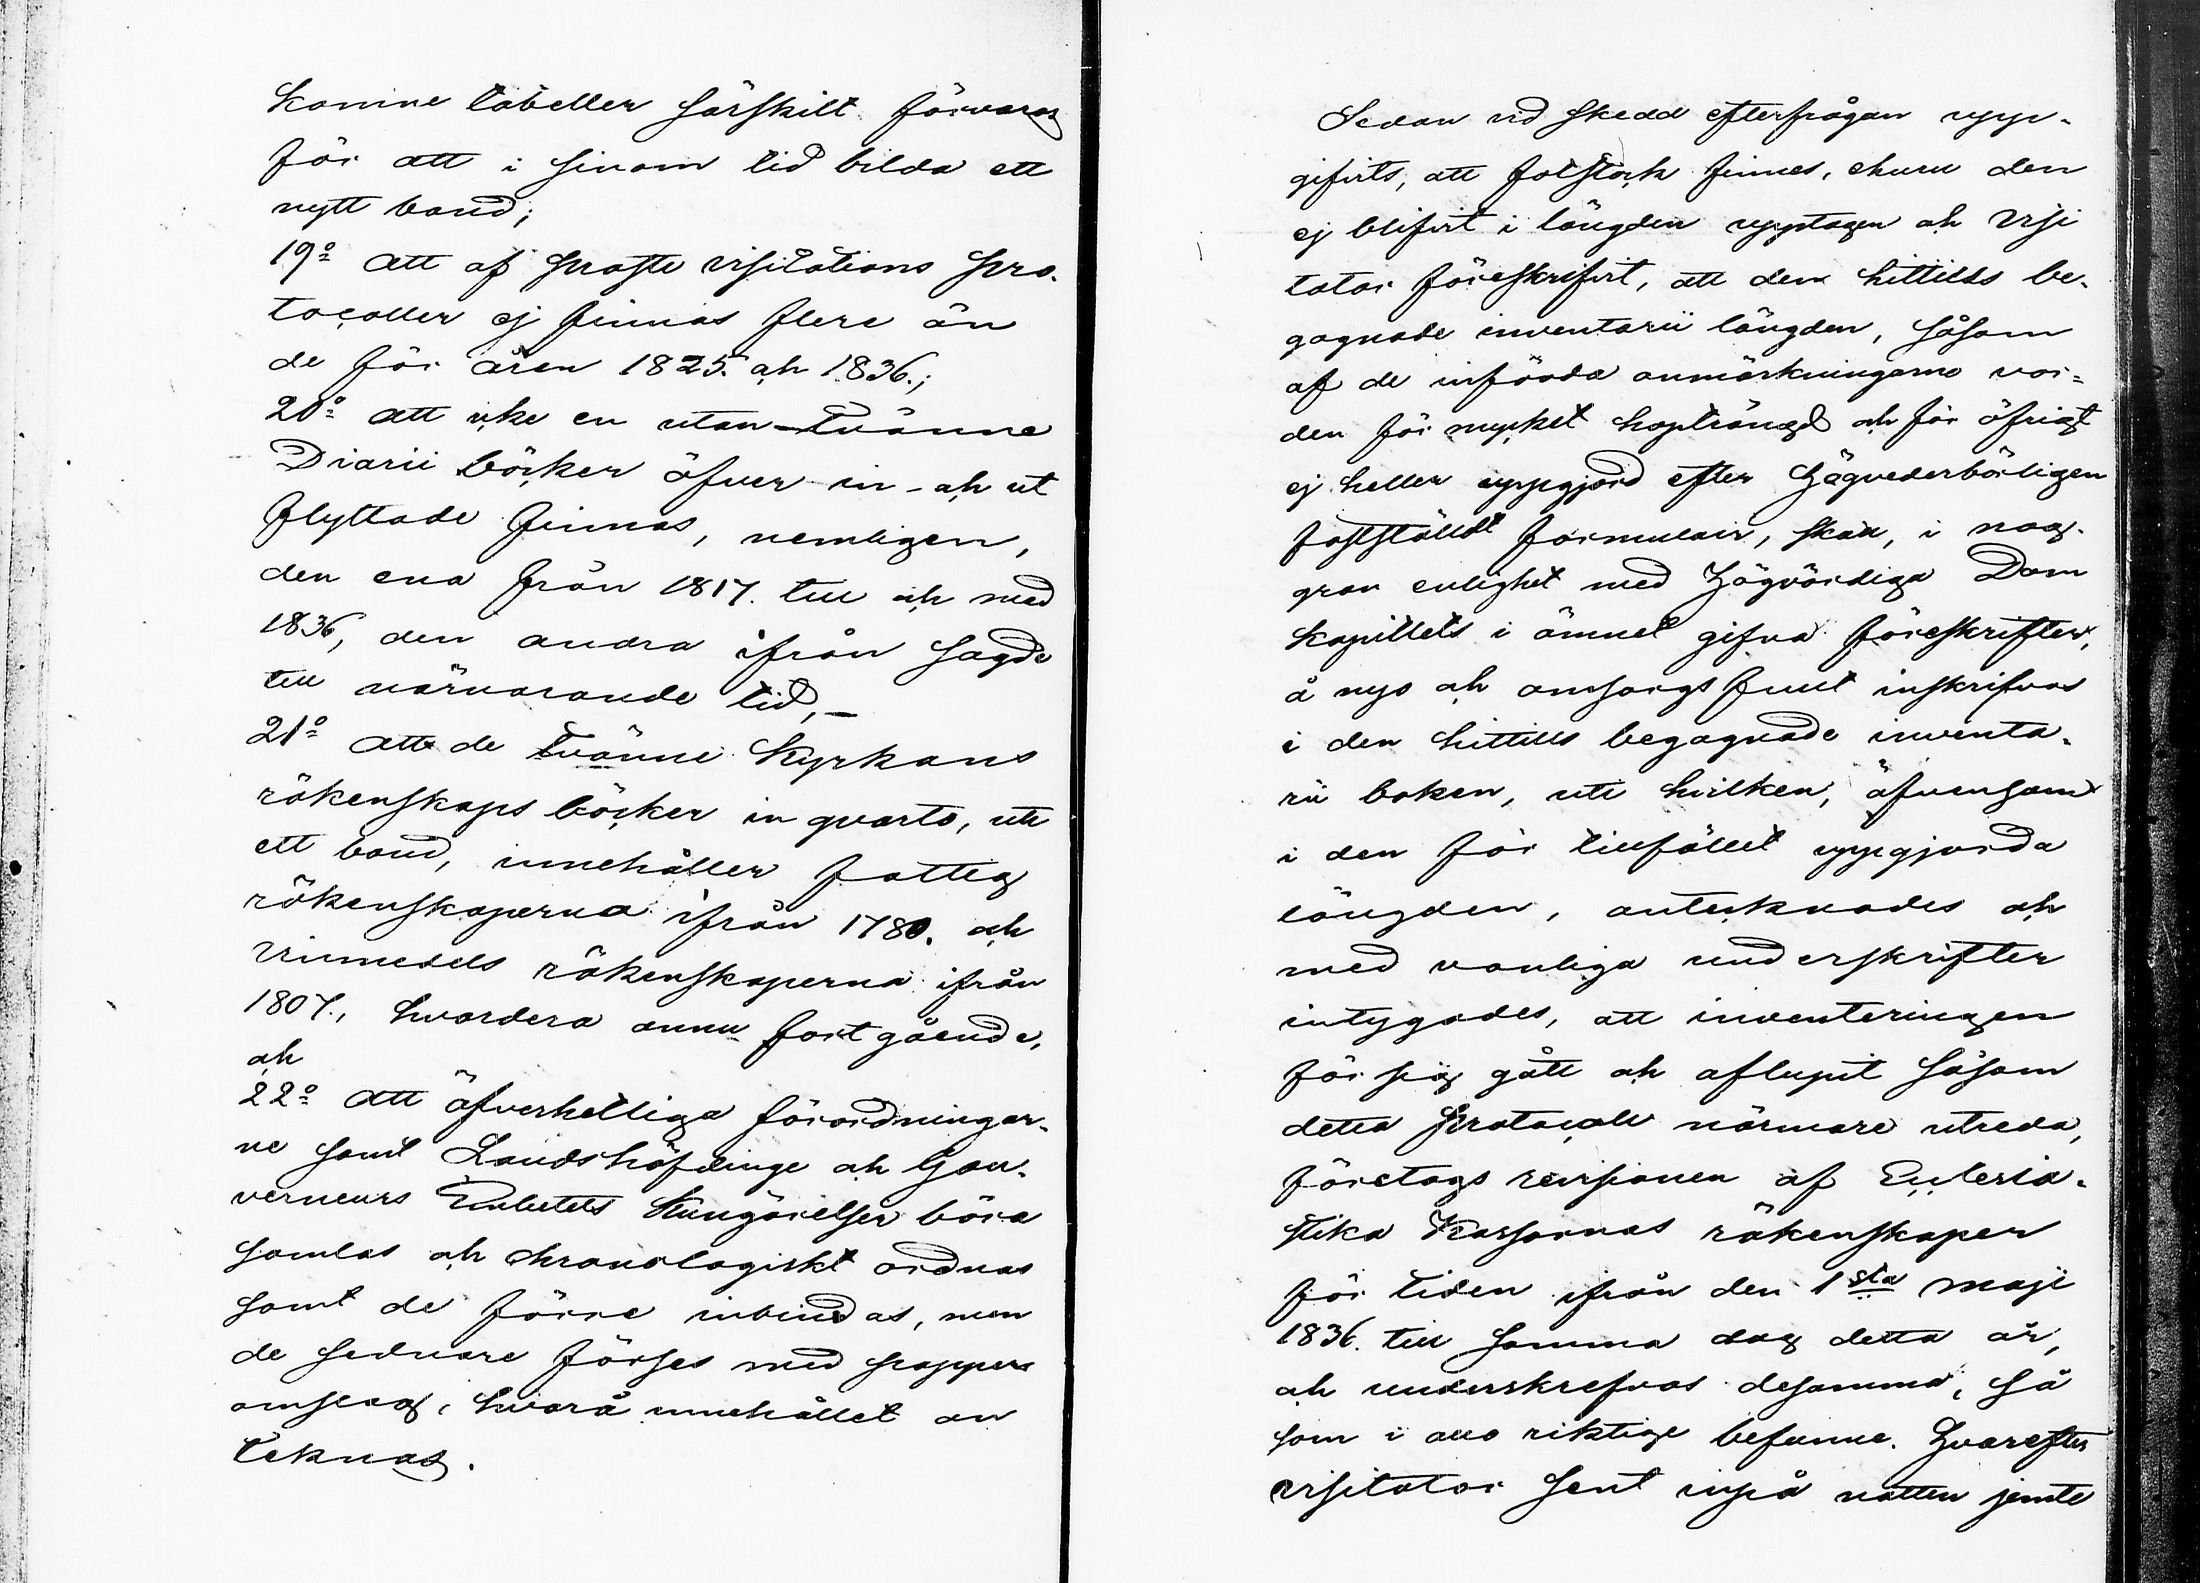 komne tabeller särskilt förvaras
för att i sinom tid bilda ett
nytt band;
19º att af Proste visitations Pro-
tocoller ej finnas flere än
de för åren 1825. och 1836.;
20º att icke en utan tvänne
Diarii böcker öfver in- och ut
flyttade finnas, nemligen,
den ena från 1817. till och med
1836, den andra ifrån sagde
till närvarande tid,-
21º att de tvänne Kyrkans
räkenskaps böcker in qvarto, uti
ett band, innehåller fattig
räkenskaperna ifrån 1780. och
vinmedels räkenskaperna ifrån
1807., hvardera ännu fortgående,
och
22º att öfverhetliga förordningar-
ne samt Landshöfdinge och Gou-
verneurs Embetets Kungörelser böra
samlas och chronologiskt ordnas
samt de förre inbindas, men
de sednare förses med pappers
omslag, hvarå innehållet an
teknas.
Sedan vid skedd efterfrågan upp-
gifvits, att fotstock finnes, churu den
ej blifvit i längden upptagen och Visi
tator föreskrifvit, att den hittills be-
gagnade inventarii längden, såsom
af de införda anmärkningarne vor-
den för mycket hopträngd och för öfrigt
ej heller uppgjord efter Högvederbörligen
fastställdt formulair, skall, i nog-
gran enlighet med Högvördiga Dom
kapitlets i ämnet gifna föreskrifter,
å nyo och omsorgsfullt inskrifvas
i den hittills begagnade inventa-
rii boken, uti hvilken, äfvensom
i den för tillfället uppgjorda
längden, antecknades och
med vanliga underskrifter
intygades, att inventeringen
för sig gått och aflupit såsom
detta Protocoll närmare utreda,
företogs revisionen af Ecclesia-
stika Kassornas räkenskaper
för tiden ifrån den 1sta Maji
1836. till samma dag detta år,
och underskrefvos desamma, så
som i allo riktige befunne. Hvarefter
Visitator sent inpå natten jemte